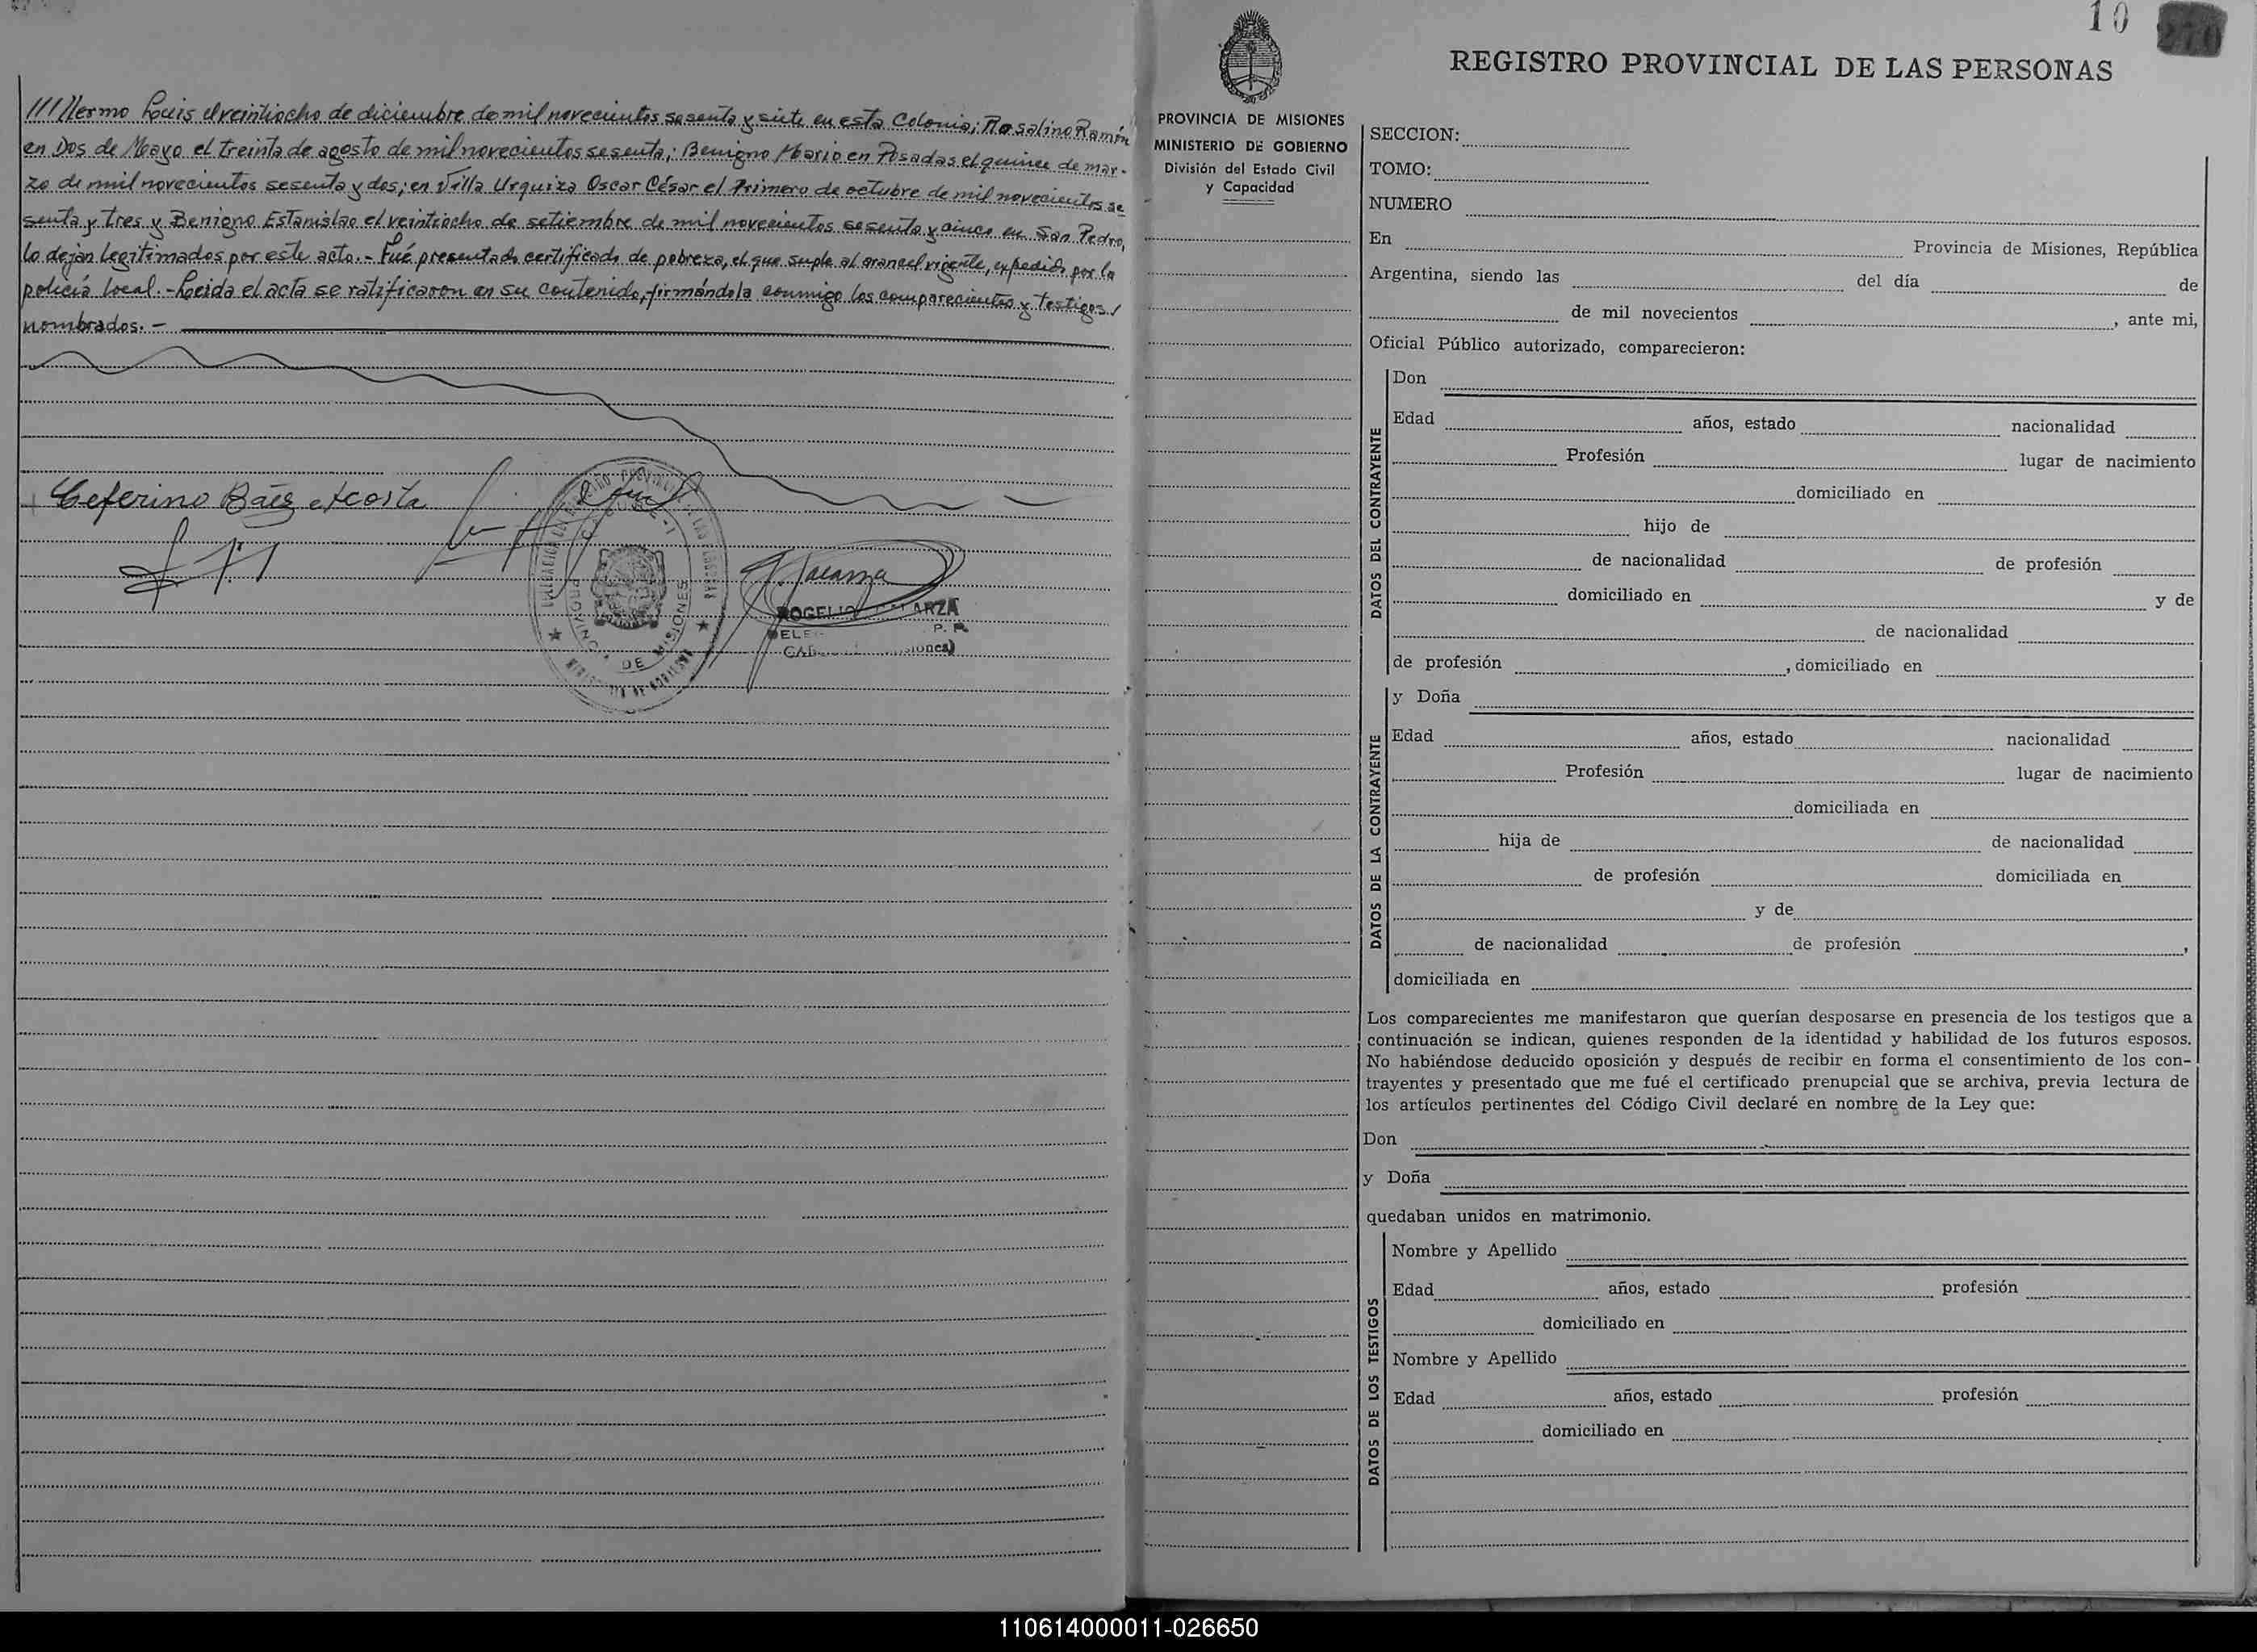 ///llermo Luis el veintiocho de diciembre de mil novecientos sesenta y siete en esta Colonia; Rosalino Ramón
en Dos de Mayo el treinta de agosto de mil novecientos sesenta; Benigno Mario en Posadas el quince de mar-
zo de mil novecientos sesenta y dos; en Villa Urquiza Oscar César el primero de octubre de mil novecientos se
senta y tres y Benigno Estanislao el veintiocho de setiembre de mil novecientos sesenta y cinco en San Pedro,
lo dejan legitimados por este acto.- Fué presentado certificado de pobreza, el que suple al arancel vigente, expedido por la
policía local.- Leida el acta se ratificaron en su contenido, firmándola conmigo los comparecientes y testigos/
nombrados.-
Ceferino Báez Acosta
PROVINCIA DE MISIONES
ROGELIO
P. P.
10
270
REGISTRO PROVINCIAL DE LAS PERSONAS
PROVINCIA DE MISIONES
MINISTERIO DE GOBIERNO
División del Estado Civil
y Capacidad
SECCION:
TOMO:
NUMERO
En Provincia de Misiones, República
Argentina, siendo las del día de
de mil novecientos , ante mi,
Oficial Público autorizado, comparecieron:
DATOS DEL CONTRAYENTE
Don
Edad años, estado nacionalidad
Profesión lugar de nacimiento
domiciliado en
hijo de
de nacionalidad de profesión
domiciliado en y de
de nacionalidad
de profesión , domiciliado en
DATOS DE LA CONTRAYENTE
y Doña
Edad años, estado nacionalidad
Profesión lugar de nacimiento
domiciliada en
hija de de nacionalidad
de profesión domiciliada en
y de
de nacionalidad de profesión ,
domiciliada en
Los comparecientes me manifestaron que querían desposarse en presencia de los testigos que a
continuación se indican, quienes responden de la identidad y habilidad de los futuros esposos.
No habiéndose deducido oposición y después de recibir en forma el consentimiento de los con-
trayentes y presentado que me fué el certificado prenupcial que se archiva, previa lectura de
los artículos pertinentes del Código Civil declaré en nombre de la Ley que:
Don
y Doña
quedaban unidos en matrimonio.
DATOS DE LOS TESTIGOS
Nombre y Apellido
Edad años, estado profesión
domiciliado en
Nombre y Apellido
Edad años, estado profesión
domiciliado en
110614000011-026650